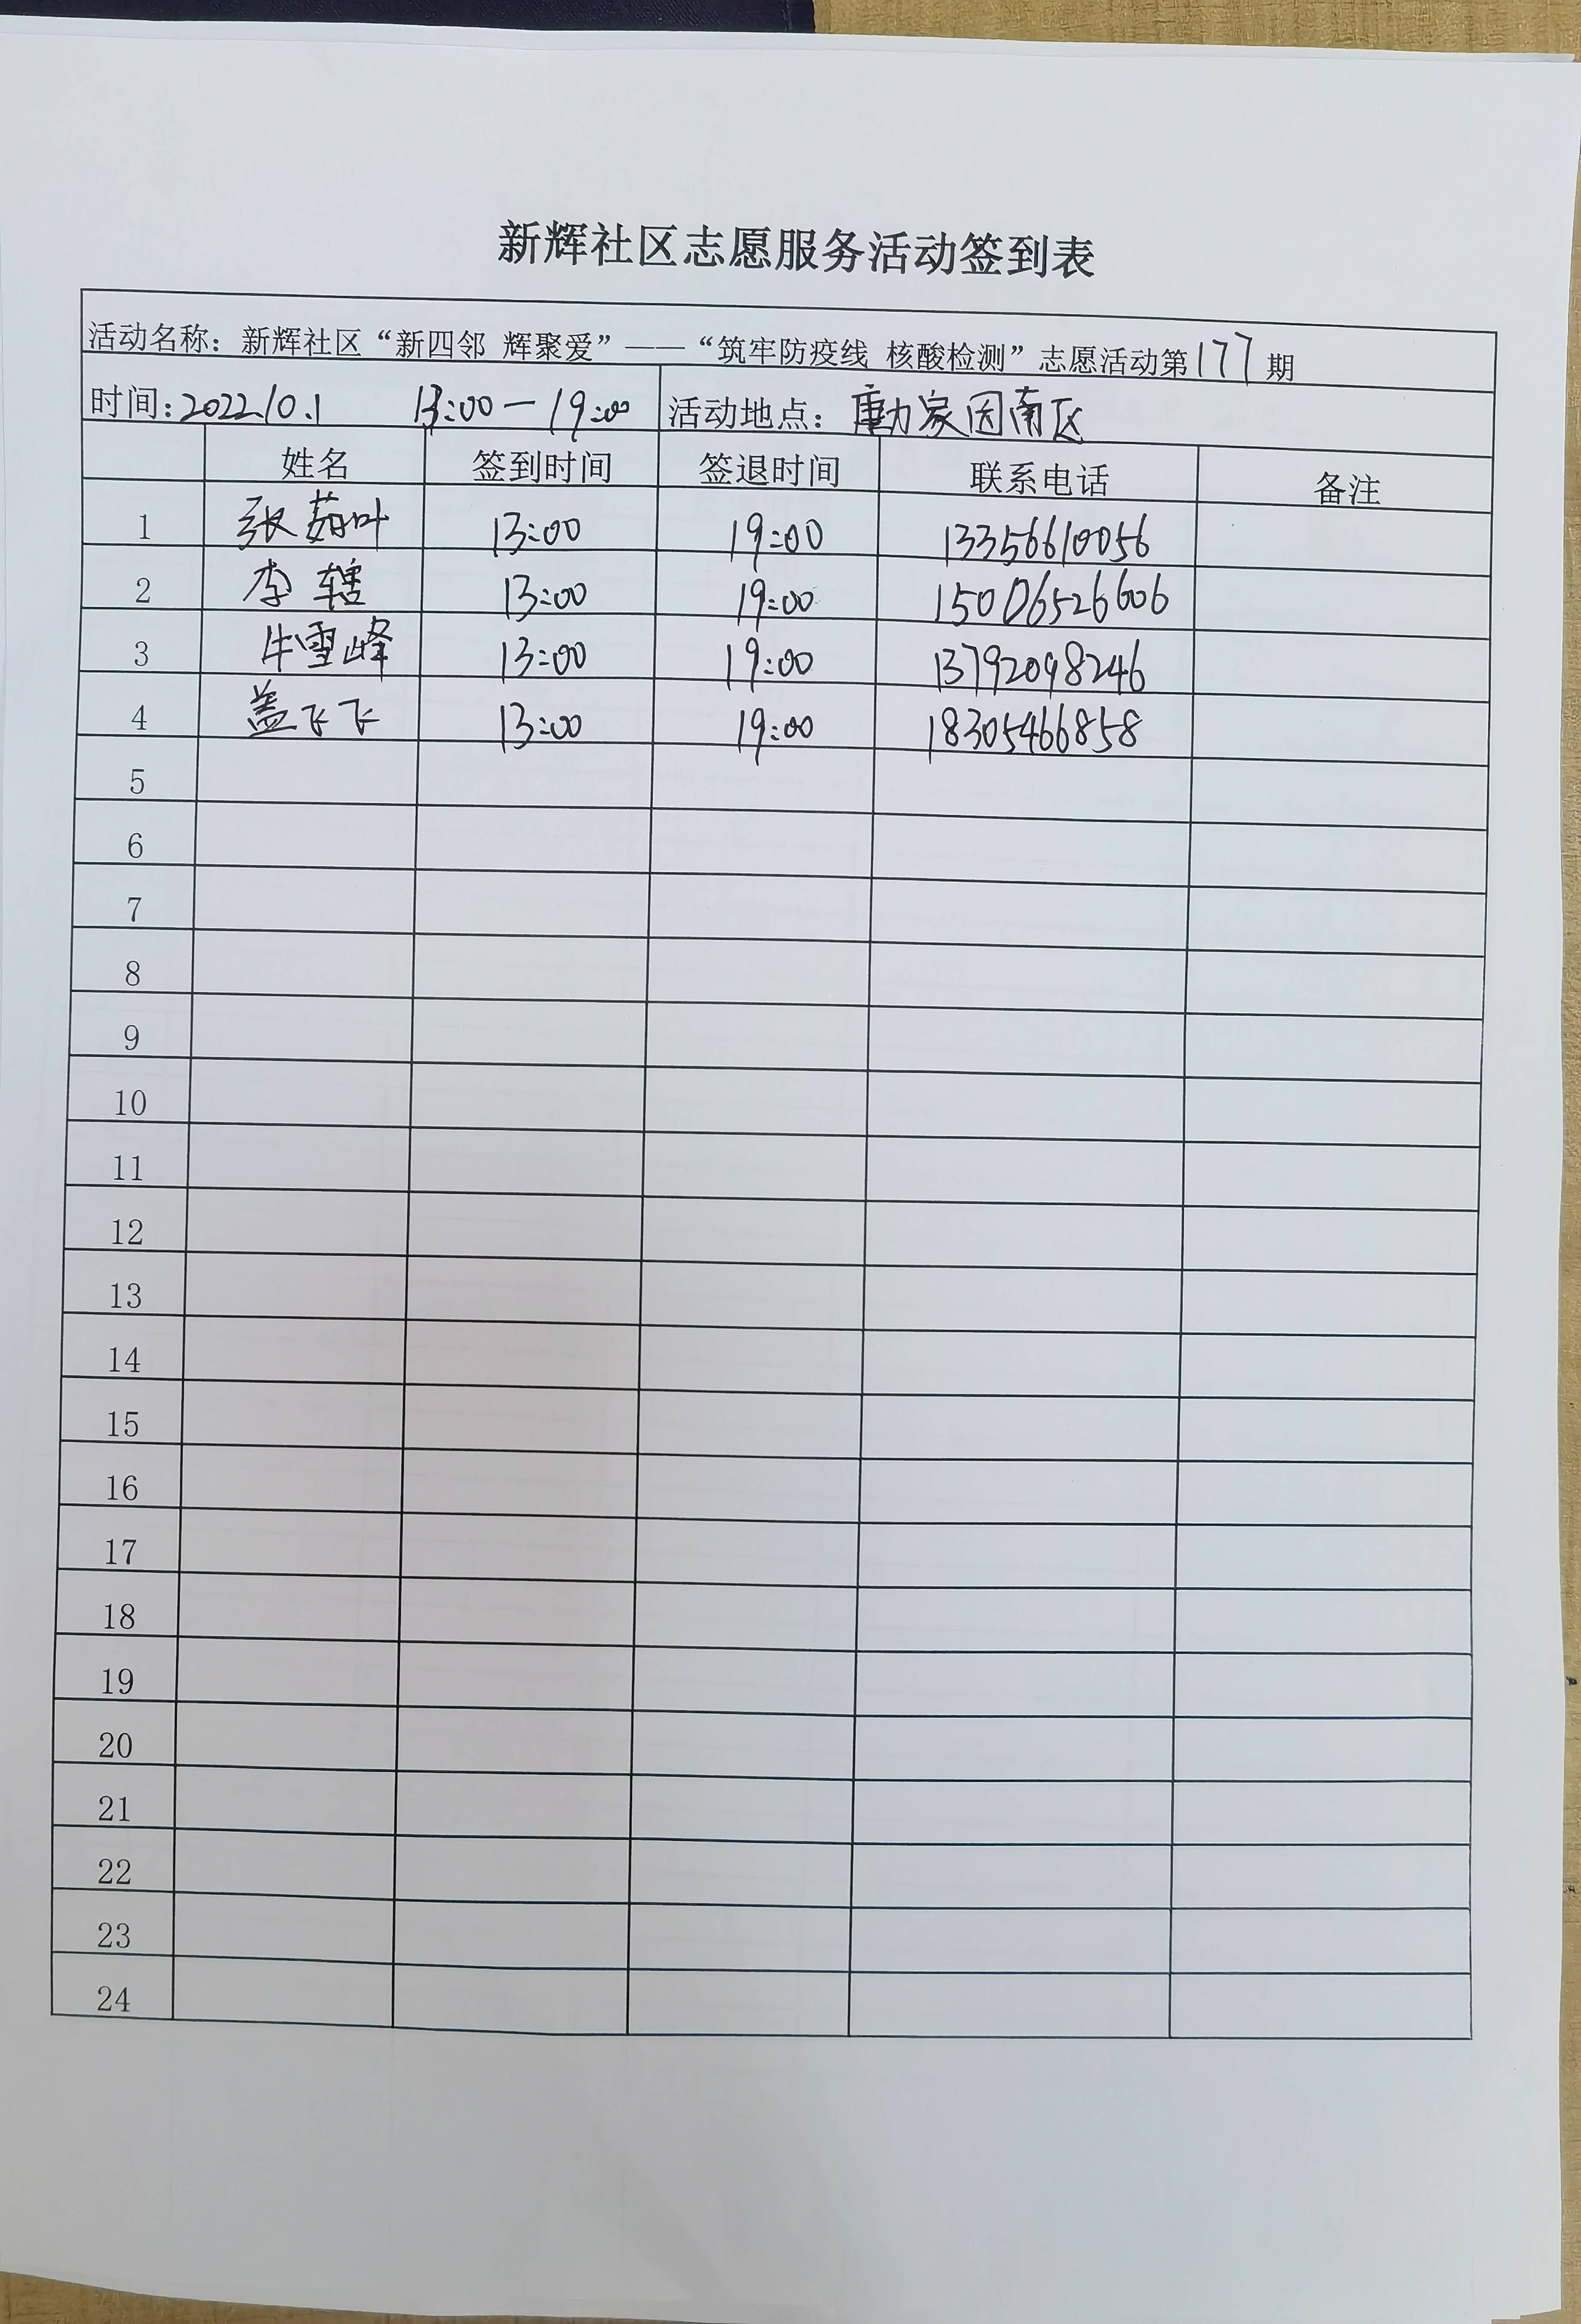 新辉社区志愿服务活动签到表
活动名称：新辉社区“新四邻 辉聚爱”——“筑牢防疫线 核酸检测”志愿活动第177期
时间：2022.10.1 13:00—19:00 活动地点：家园南区
姓名 签到时间 签退时间 联系电话 备注
1 张茹叶 13:00 19:00 13356610056
2 李辖 13:00 19:00 15006526606
3 牛雪峰 13:00 19:00 13792098246
4 盖飞飞 13:00 19:00 18305466858
5
6
7
8
9
10
11
12
13
14
15
16
17
18
19
20
21
22
23
24